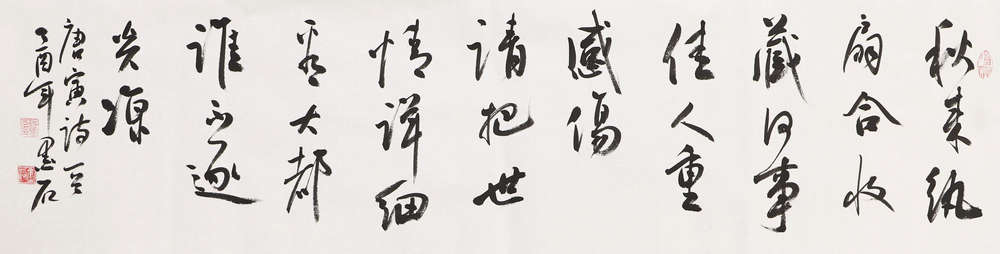 秋来纨
扇合收
藏何事
佳人重
感伤
请把世
情详细
看大都
谁不逐
炎凉
唐寅诗一首
乙酉年墨石